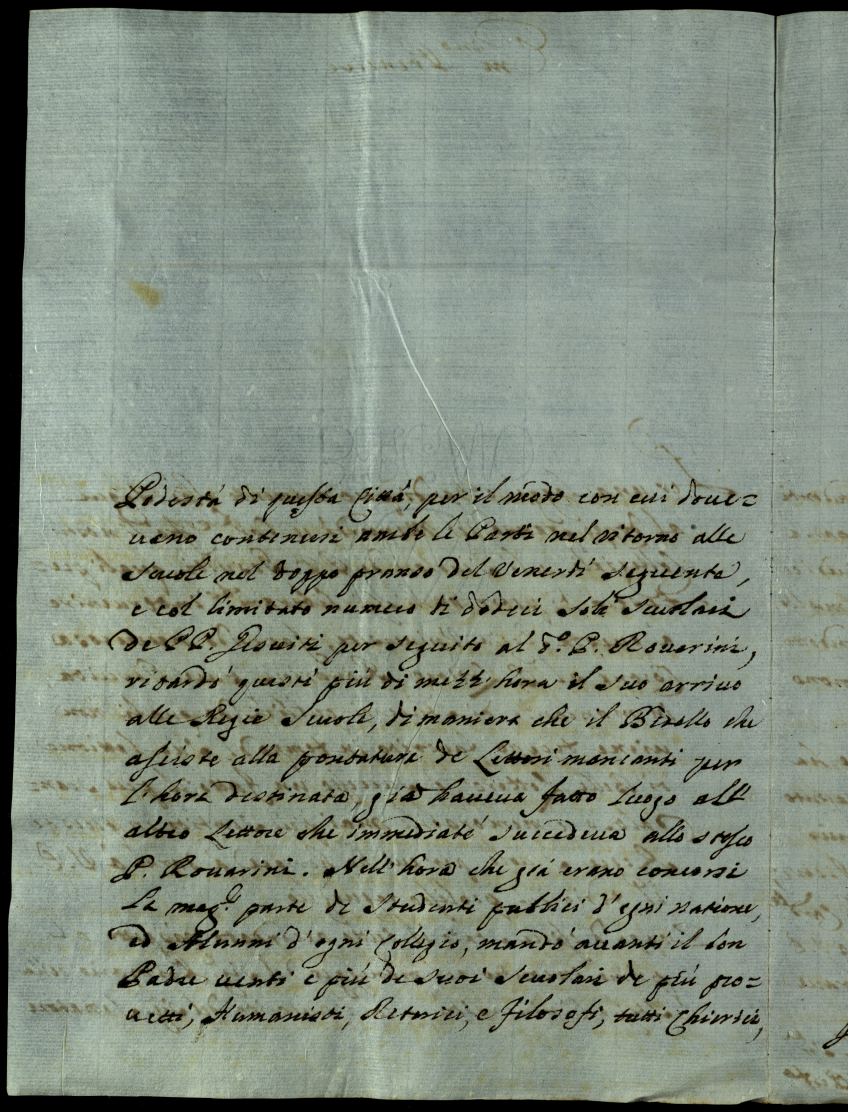 Podestá di questa Cittá, per il modo con cui doue=
uano contenersi ambe le Parti nel ritorno alle
scuole nel doppo pranso del Venerdí seguente,
e col limitato numero di dodeci soli scuolari
de PP. Gesuiti per seguito al d.º P. Rouarini,
ritardó questi piú di mezz' hora il suo arriuo
alle Regie scuole, di maniera che il Bidello che
assiste alla pontatura de Lettori mancanti per
l' hora destinata, giá haueua fatto luogo all'
altro Lettore che immediaté succedeua allo stesso
P. Rouarini. Nell' hora che giá erano concorsi
la mag.ᵉ parte de studenti publici d' ogni natione,
ed Alunni d' ogni Collegio, mandó auanti il bon
Padre uenti e piú de suoi scuolari de piú pro=
uetti, Humanisti, Retorici, e filosofi, tutti Chierici,